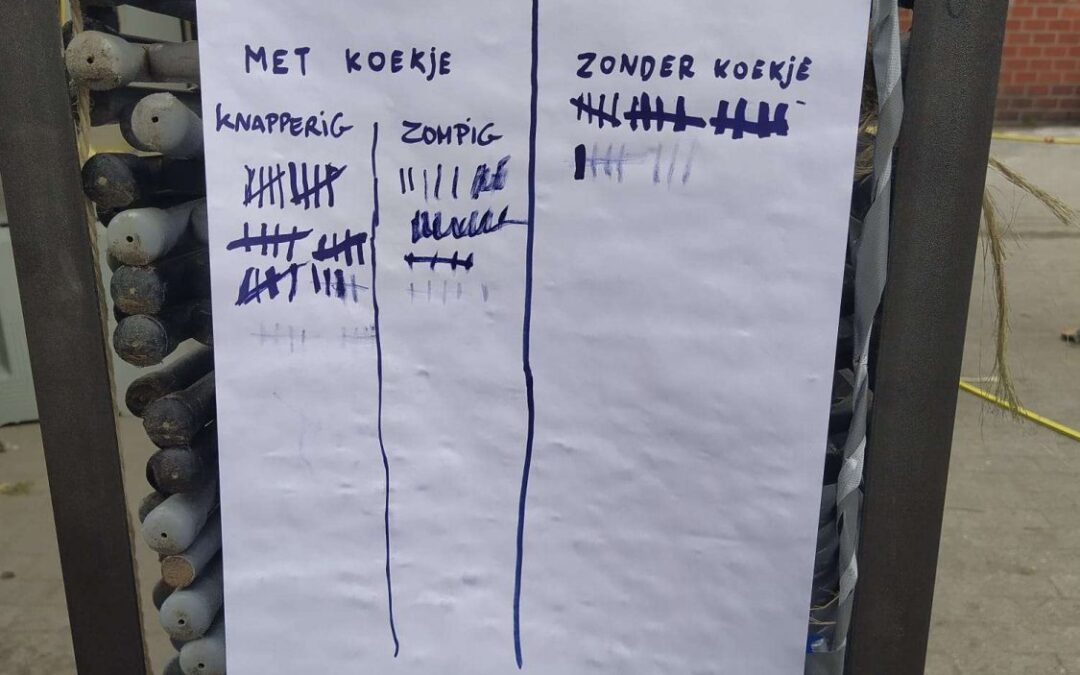 MET KOEKJE
KNAPPERIG
ZOMPIG
ZONDER KOEKJE